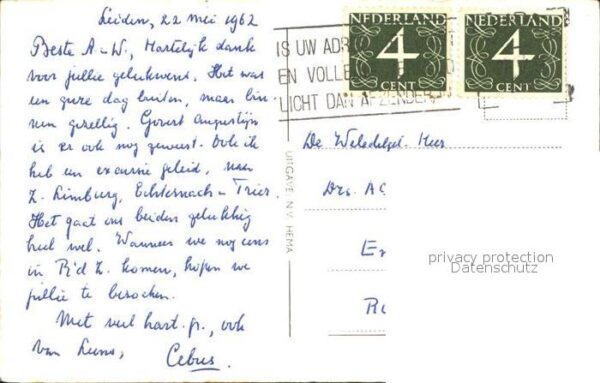 Leiden, 22 mei 1962
Beste A-W, Hartelijk dank
voor jullie gelukwens. Het was
een gure dag buiten, maar bin
nen gezellig. Govert Augustijn
is er ook nog geweest. Ook ik
heb een excursie geleid, naar
Z. Limburg, Echternach - Trier.
Het gaat ons beiden gelukkig
heel wel. Wanneer we nog eens
in R'd Z. komen, hopen we
jullie te bezoeken.
Met veel hart. gr., ook
van Leens,
Cebus.
UITGAVE N.V. HEMA
IS UW ADR
EN VOLLE
LICHT DAN AFZENDER
NEDERLAND
4
CENT
NEDERLAND
4
CENT
De Weledelgel. Heer
Drs. A
privacy protection
Datenschutz